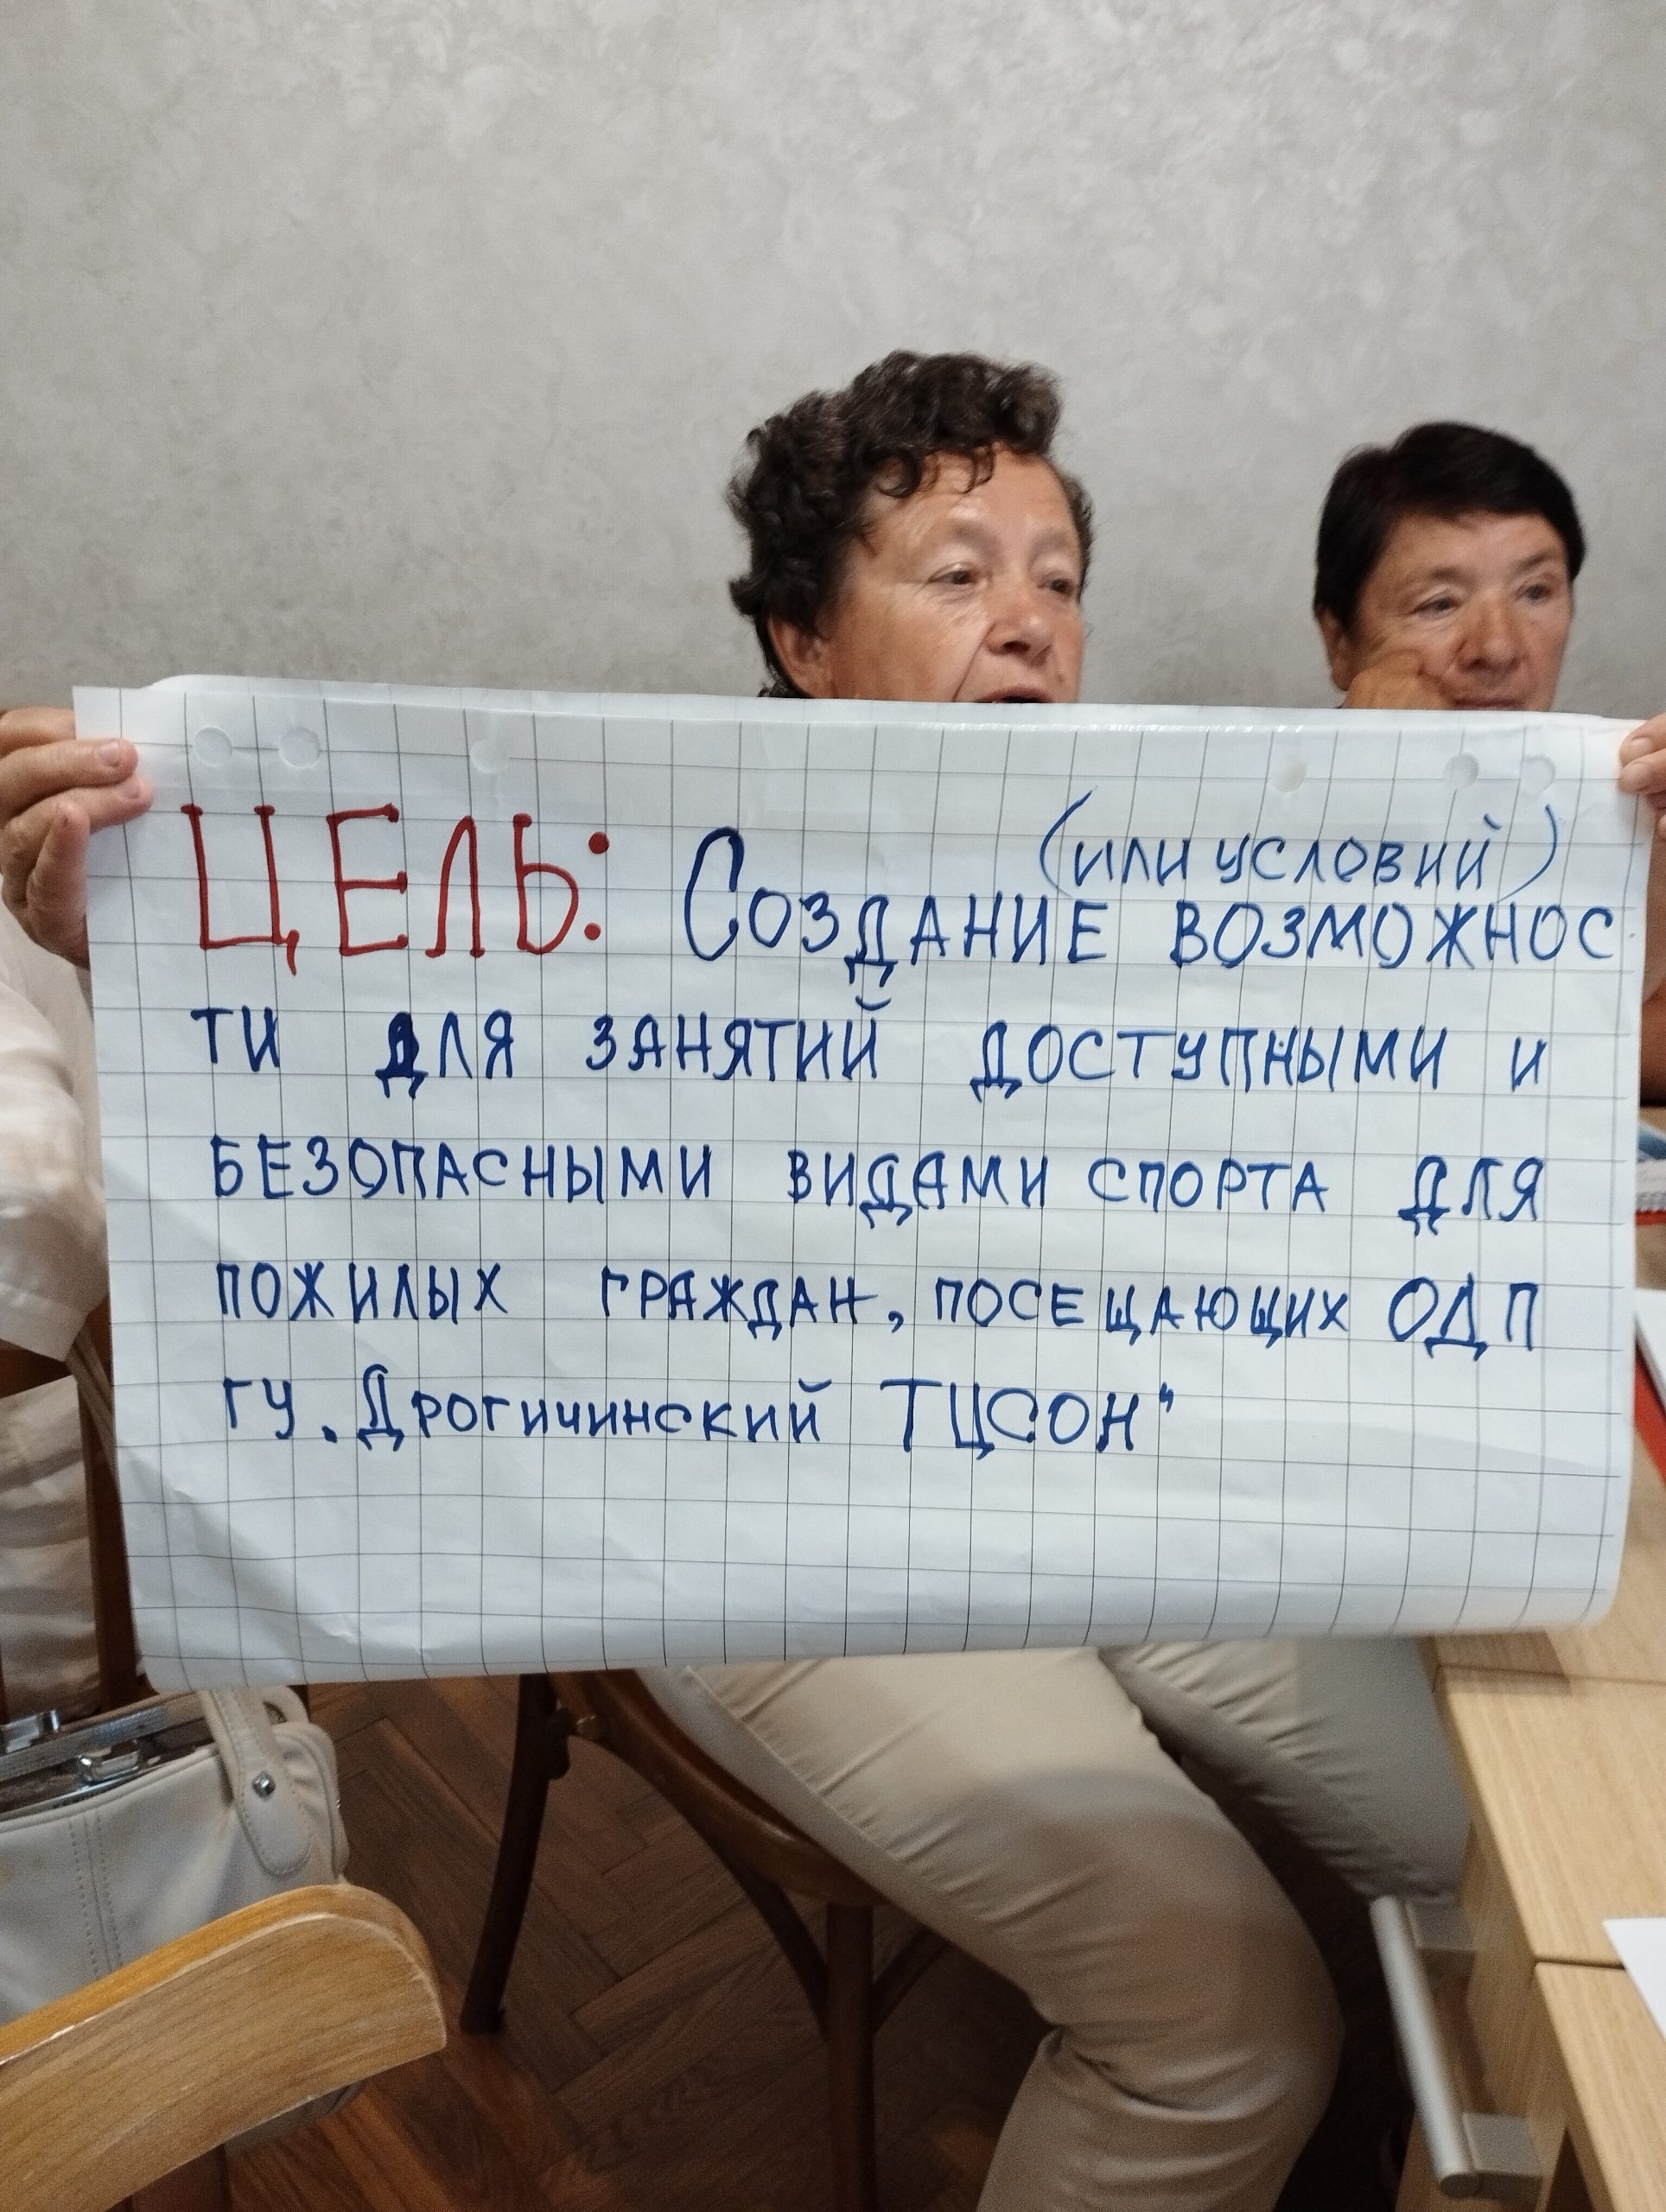 (или условий)
ЦЕЛЬ: СОЗДАНИЕ ВОЗМОЖНОС
ТИ ДЛЯ ЗАНЯТИЙ ДОСТУПНЫМИ И
БЕЗОПАСНЫМИ ВИДАМИ СПОРТА ДЛЯ
ПОЖИЛЫХ ГРАЖДАН, ПОСЕЩАЮЩИХ ОДП
ГУ „Дрогичинский ТЦСОН"